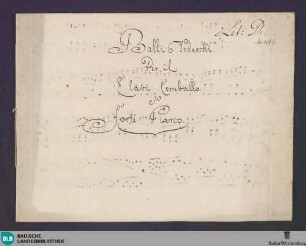 Lit: D.
Balli 6 Tedeschi
Per il
Clavi Cembalo
o
Forte Piano
BLB
BADISCHE
LANDESBIBLIOTHEK
Baden-Württemberg